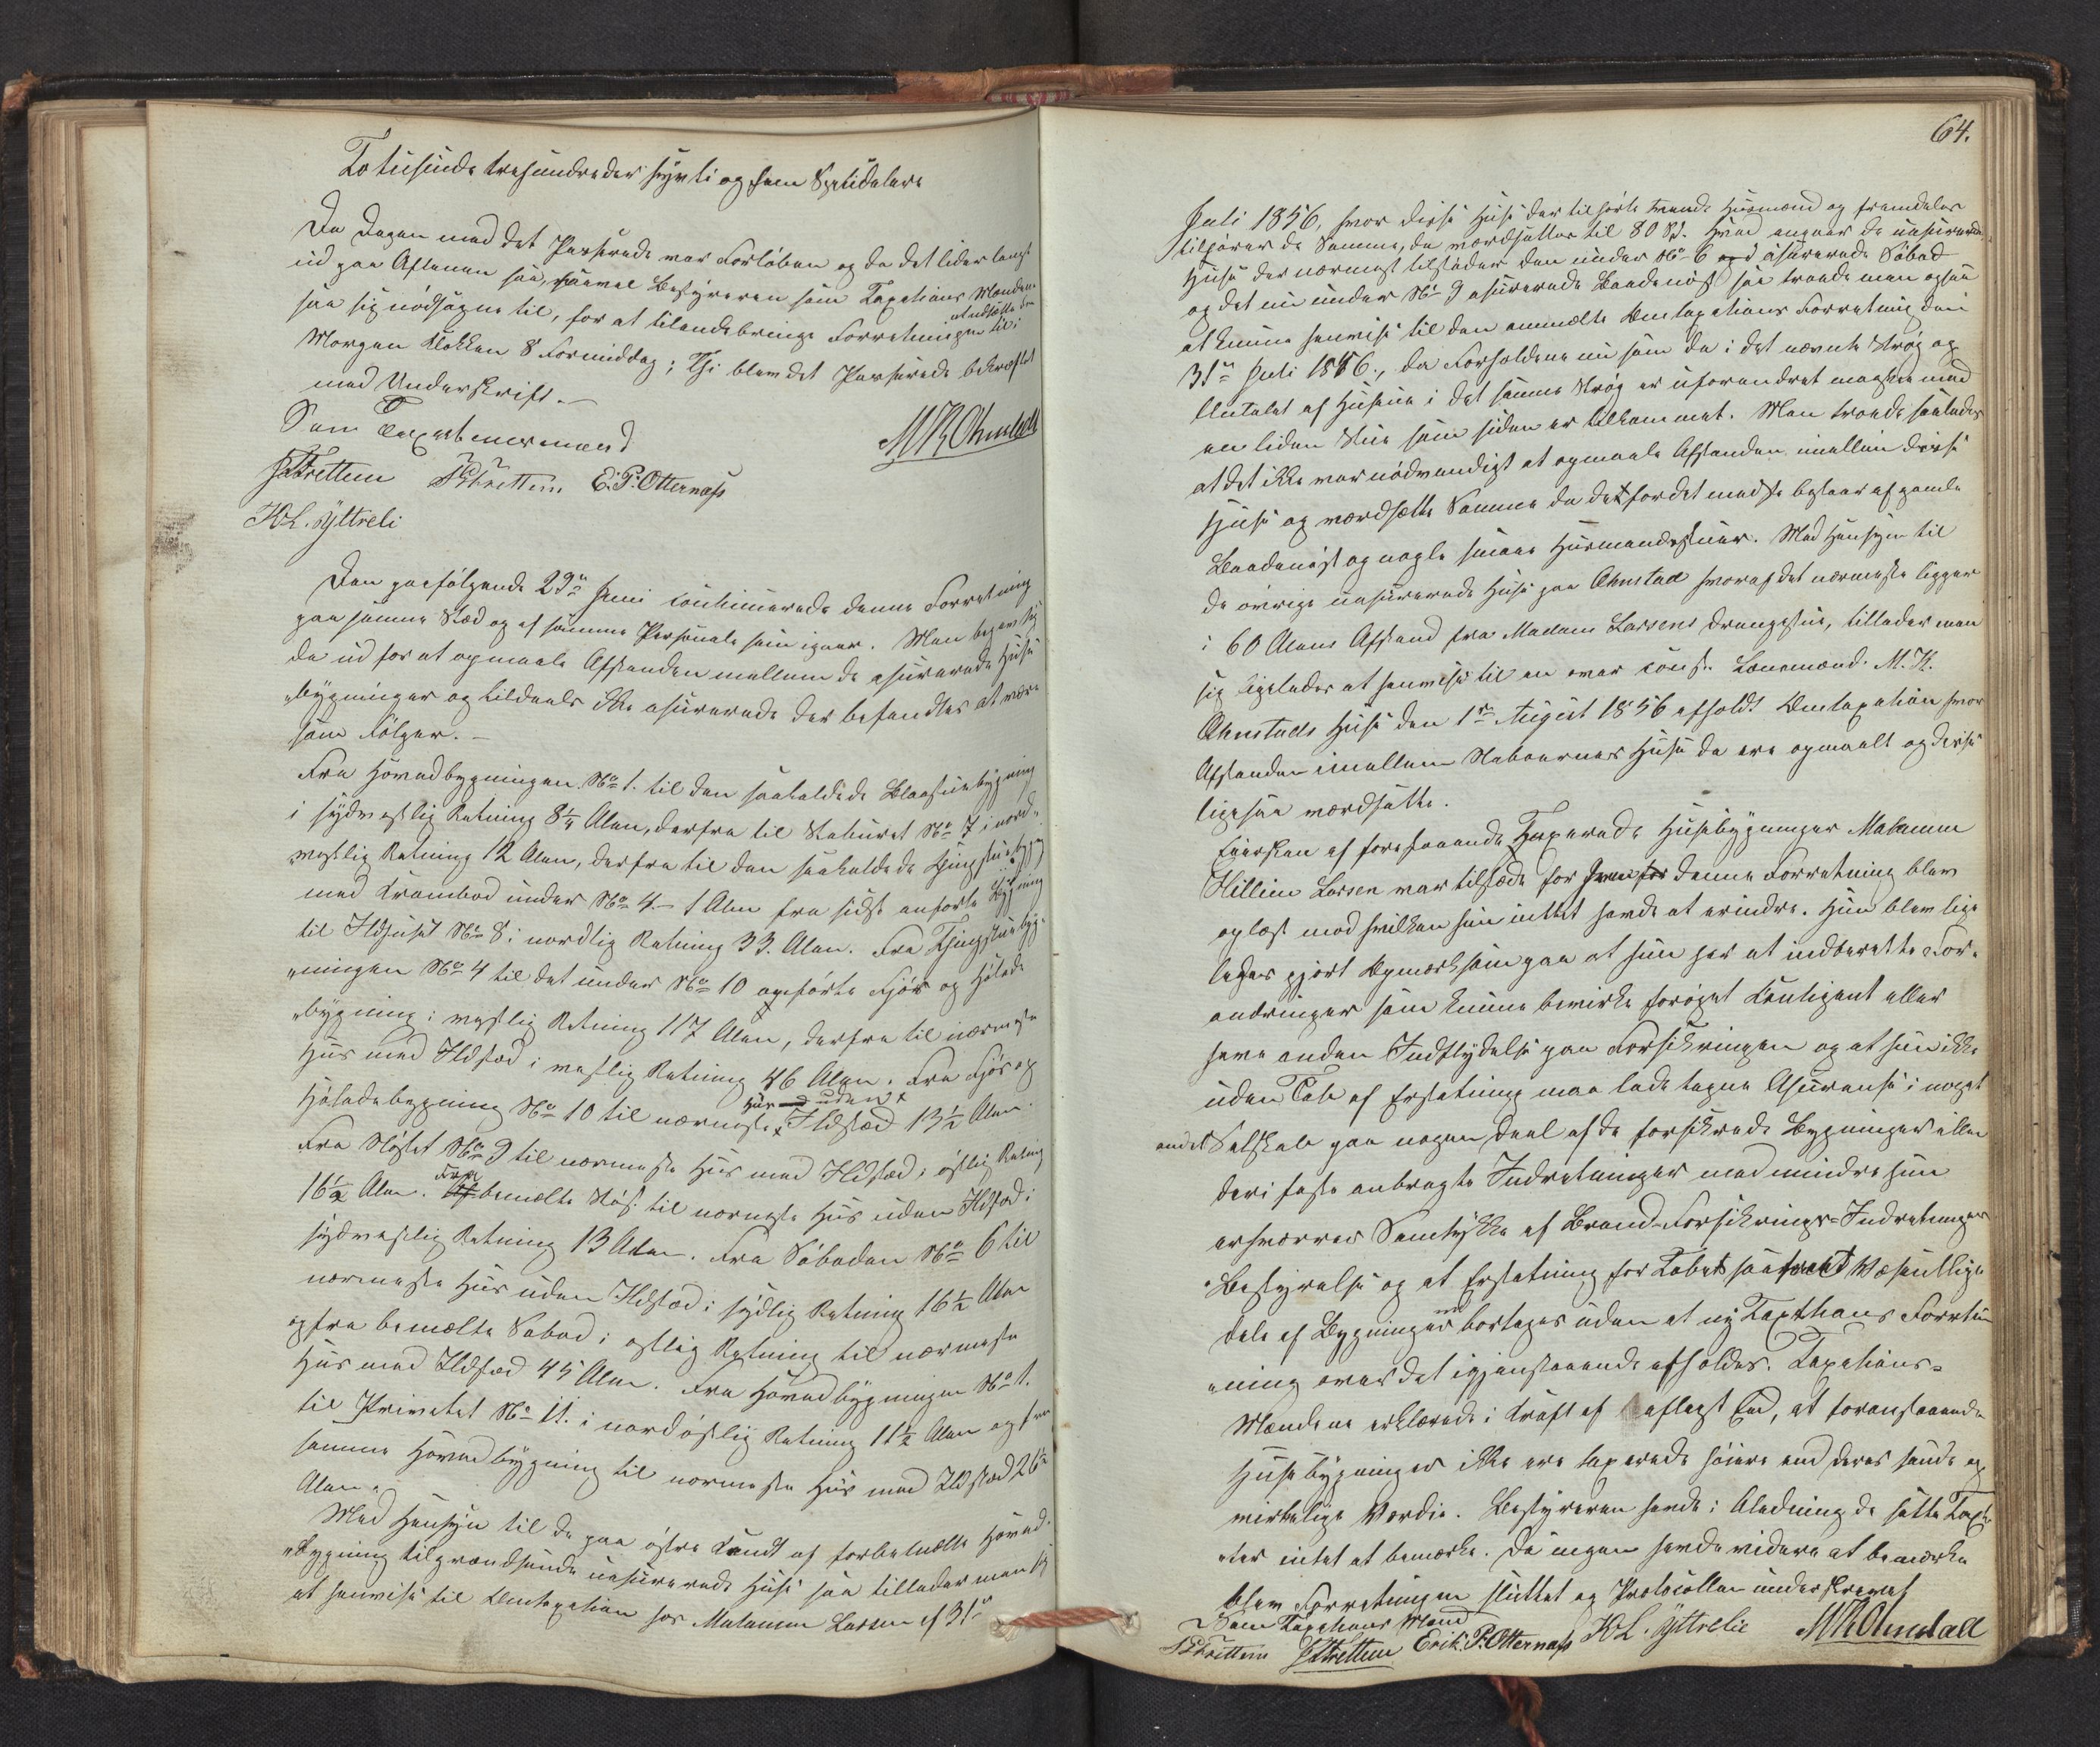 Totusinde trehundreder syvti og fem Speeidalere
Da Dagen med det Passerede var Forløben og da det lider langt
ud paa Aftenen saa, saavel Bestyreren som Taxations Mændene
saa sig nødsagne til, for at tilendebringe Forretningen at udsætte den til i
Morgen Klokken 8 Formiddag; Thi blev det Passerede bekræftet
med Underskrift. —
Som Taxationsmænd
MKOhnstad
JATrettem PBTrettem E. P. Otternæss
H L. Yttreli
Den paafølgende 29de Juni continuerede denne Forretning
paa samme Sted og af samme Personale som igaar. Man begav sig
da ud for at opmaale Afstanden mellem de asurerede Huse
„bygninger og tildeels ikke asurerede der befandtes at være
som Følger. —
Fra Hovedbygningen No 1. til den saakaldede Blaastuebygning
i sydvestlig Retning 8¼ Alen, derfra til Staburet No 7 i nord„
vestlig Retning 12 Alen, derfra til den saakaldede Thingstuebygg
med Krambod under No 4.— 1 Alen fra sidst anførte Bygning
til Ildhuset No 8 i nordlig Retning 33. Alen. Fra Thingstuebyg„
„ningen No 4 til det under No 10 opførte Fjøs og Hølade
„bygning i vestlig Retning 117 Alen, derfra til nærmeste
Huus med Ildsted i vestlig Retning 46 Alen. Fra Fjøs og
Høladebygning No 10 til nærmeste Huus uden Ildsted 13½ Alen.
Fra Nøstet No 9 til nærmeste Huus med Ildsted i østlig Retning
16½ Alen. Fra bemælte Nøst til nærmeste Huus uden Ildsted i
sydvestlig Retning 13 Alen. Fra Søboden No 6 til
nærmeste Huus uden Ildsted i sydlig Retning 16½ Alen
og fra bemælte Søbod i østlig Retning til nærmeste
Huus med Ildsted 45 Alen. Fra Hovedbygningen No 1.
til Privetet No 11. i nordøstlig Retning 11½ Alen og fra
samme Hovedbygning til nærmeste Huus med Ildsted 26
Alen.
Med Hensyn til de paa østre Kandt af forbemælte Hoved„
„bygning tilgrændsende uasurerede Huse saa tillader man sig
at henvise til Omtaxation hos Madamme Lassen af 31te
64.
Juli 1856, hvor disse Huse der tilhørte tvende Husmænd og fremdeles
tilhører de Samme, da værdsattes til 80 Spd. Hvad angaar de uasurerede
Huse der nærmest tilstøder den under No 6 asurerede Søbod
og det nu under No 9 asurerede Baadenøst saa troede man ogsaa
at kunne henvise til den anmelte Omtaxations Forretning den
31te Juli 1856., da Forholdene nu som da i det nævnte Strøg og
Antalet af Husene i det samme Strøg er uforandret maaskee med
en liden Stue som siden er tilkommet. Man troede saaledes
at det ikke var nødvendigt at opmaale Afstanden imellem disse
Huse og værdsætte Samme da det for det meeste bestaar af gamle
Baadenøst og nogle smaae Husmandsstuer. Med Hensyn til
de øvrige uasurerede Huse paa Ohnstad hvoraf det nærmeste ligger
i 60 Alens Afstand fra Madam Lassens Drengestue, tillader man
sig ligeledes at henvise til en over const. Lensmand M. K.
Ohnstads Huse den 1ste August 1856 afholdt Omtaxation hvor
Afstanden imellem Naboernes Huse da ere opmaalt og disse
ligesaa værdsatte.
Eiersken af forestaaende Taxerede Husebygninger Madamme
Lassen var tilstede for hvem denne Forretning blev
oplæst mod hvilken hun inttet havde at erindre. Hun blev lige
ledes gjort Opmærksom paa at hun har at indberette For„
andringer som kunne bevirke forøget Kontigent eller
have anden Indflydelse paa Forsikringen og at hun ikke
uden Tab af Erstatning maa lade tegne Asuranse i noget
andet Selskab paa nogen Deel af de forsikrede Bygninger eller
deri faste anbragte Indretninger med mindre hun
erhverver Samtykke af Brand-Forsikrings-Indretningens
„Bestyrelse og at Erstatning for Tabet saafremt Væsentlige
dele af Bygninger bortages uden at ny Taxthans Forretn
„ning over det igjenstaaende afholdes. Taxations=
Mændene erklærede i Kraft af aflagt Eed, at foranstaaende
Husebygninger ikke ere taxerede høiere end deres sande og
virkelige Værdie. Bestyreren havde i Aledning de satte Taxt„
„ter intet at bemærke. Da ingen havde videre at bemærke
blev Forretningen sluttet og Protocollen underskrevet
Som Taxations Mænd
PBTrettem JATrettem Erik. P. Otternæss H L. Yttrelie MKOhnstad